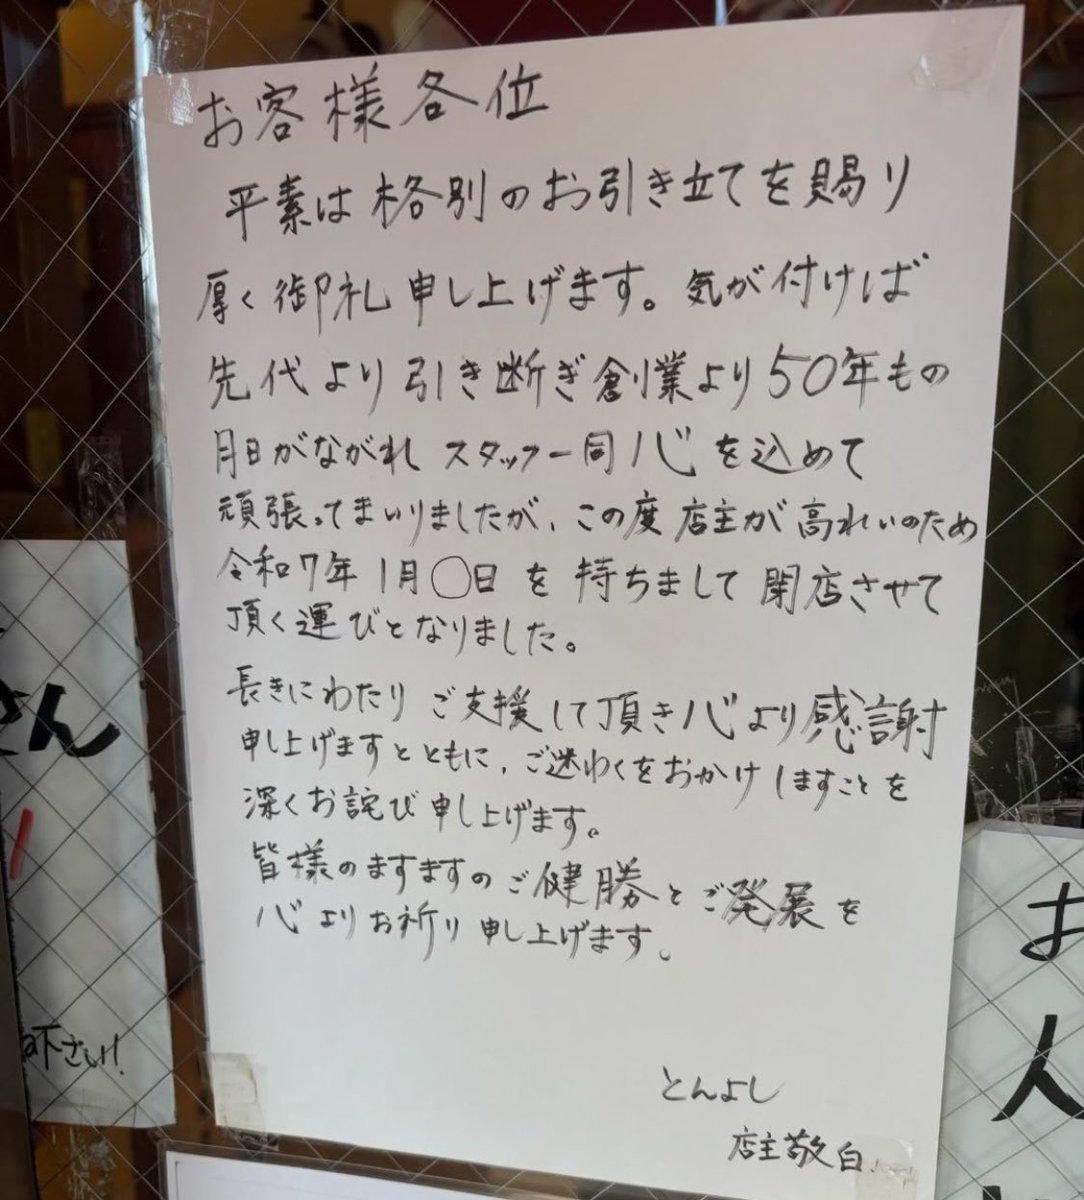 お客様各位
平素は格別のお引き立てを賜り
厚く御礼申し上げます。気が付けば
先代より引き断ぎ創業より50年もの
月日がながれスタッフ一同心を込めて
頑張ってまいりましたが、この度店主が高れいのため
令和7年1月〇日を持ちまして閉店させて
頂く運びとなりました。
長きにわたりご支援して頂き心より感謝
申し上げますとともに、ご迷わくをおかけしますことを
深くお詫び申し上げます。
皆様のますますのご健勝とご発展を
心よりお祈り申し上げます。
とんよし
店主敬白
さん
下さい!
お
人